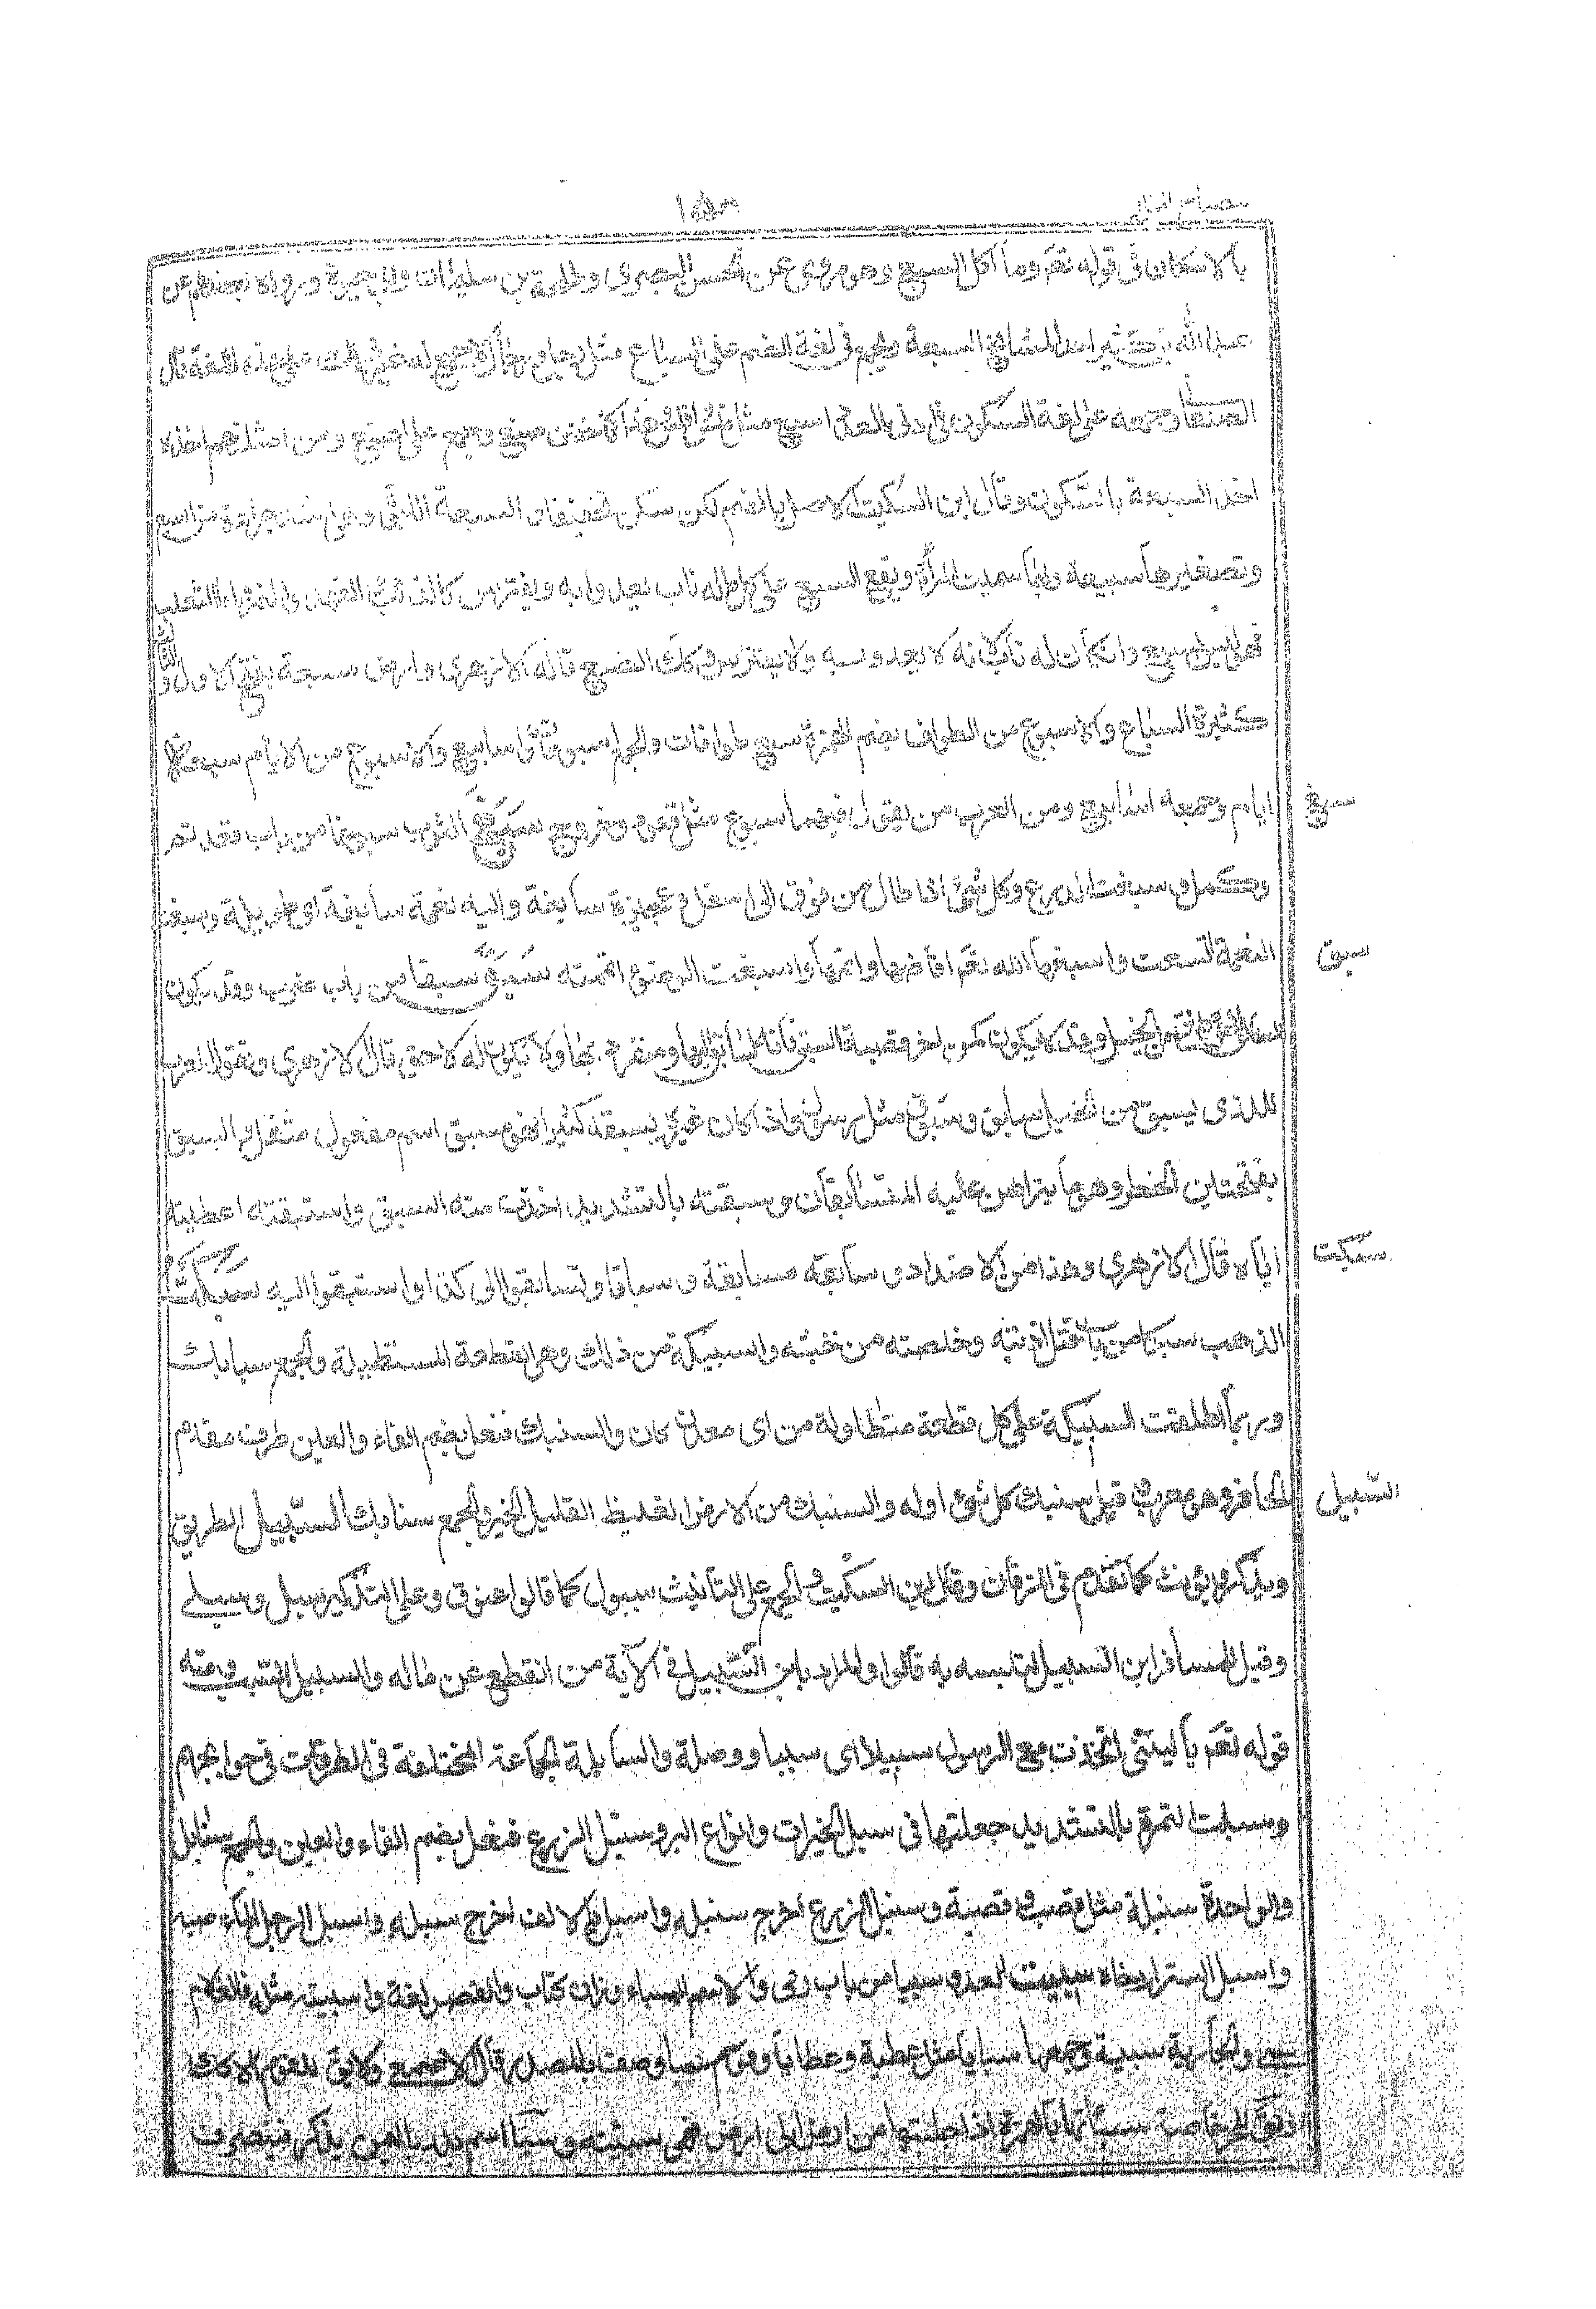 مصباح المنير
١٥٣
بالاسكان فى قوله تعم وما اكل السبع وهو مروى عن الحسن البصرى وطلحة بن سليمان وابى حيوة ورواه بعضهم عن
عبد الله بن كثير احد السبعة ويجمع فى لغة الضم على السباع مثل رجل ورجال لا جمع له غير ذلك على هذه اللغة قال
الصنعانى وجمعه على لغة السكون فى ادنى العدد اسبع مثل فلس وافلس وهذا كما خفف ضبع وجمع على اضبع ومن امثلتهم اخذه
اخذ السبعة بالسكون وقال ابن السكيت الاصل بالضم لكن سكن تخفيفا والسبعة اللبوة وهى اشد جراءة من السبع
وتصغيرها سبيعة وبها سميت المرأة ويقع السبع على كل ما له ناب يعدو به ويفترس كالذئب والفهد والنمر واما الثعلب
فليس بسبع وان كان له ناب لانه لا يعدو به ولا يفترس وكذلك الضبع قاله الازهرى وارض مسبعة بفتح الاول والثالث
كثيرة السباع والاسبوع من الطواف بضم الهمزة سبع طوافات والجمع اسبوعات واسابيع والاسبوع من الايام سبعة
ايام وجمعه اسابيع ومن العرب من يقول فيهما سبوع مثل قعود وخروج سَبَغَ الثوب سبوغا من باب قعد تم
سبغ
وكمل وسبغت الدرع وكل شئ اذا طال من فوق الى اسفل وعجيزة سابغة والية نعمة سابغة اى طويلة وسبغت
النعمة اتسعت واسبغها الله تعم افاضها واتمها واسبغت الوضوء اتممته سَبَقَ سبقا من باب ضرب وقد يكون
سبق
للسابق لاحق كالسابق من الخيل وقد لا يكون كمن احرز قصبة السبق فانه سابق اليها ومنفرد بها ولا يكون له لاحق قال الازهرى وتقول العرب
للذى يسبق من الخيل سابق وسبوق مثل رسول واذا كان غيره يسبقه كثيرا فهو مسبق اسم مفعول مثقل والسبق
بفتحتين الخطر وهو ما يتراهن عليه المتسابقان وسبقته بالتشديد اخذت منه السبق وسبقته اعطيته
اياه قال الازهرى وهذا من الاضداد وسابقه مسابقة وسباقا وتسابقوا الى كذا واستبقوا اليه سَبَكْتُ
سبكت
الذهب سبكا من باب قتل اذبته وخلصته من خبثه والسبيكة من ذلك وهى القطعة المستطيلة والجمع سبايك
وربما اطلقت السبيكة على كل قطعة متطاولة من اى معدن كان والسنبك فنعل بضم الفاء والعين طرف مقدم
الحافر وهو معرب وقيل سنبك كل شئ اوله والسنبك من الارض الغليظ القليل الخير والجمع سنابك السَّبيل الطريق
السّبيل
ويذكر ويؤنث كما تقدم فى الزقاق وقال ابن السكيت والجمع على التانيث سبول كما قالوا عنوق وعلى التذكير سبل وسبل
وقيل للمسافر ابن السبيل لتلبسه به قالوا والمراد بابن السَّبيل فى الآية من انقطع عن ماله والسبيل السبب ومنه
قوله تعم يا ليتنى اتخذت مع الرسول سبيلا اى سببا ووصلة والسابلة الجماعة المختلفة فى الطرقات فى حوايجهم
وسبلت الثمرة بالتشديد جعلتها فى سبل الخيرات وانواع البر وسنبل الزرع فنعل بضم الفاء والعين والجمع سنابل
والواحدة سنبلة مثل قصب وقصبة وسنبل الزرع اخرج سنبله واسبل بالالف اخرج سبله واسبل الرجل الماء صبه
واسبل الستر ارخاه سبيت العدو سبيا من باب رمى والاسم السباء وزان كتاب والقصر لغة واسبيته مثله فالغلام
سبى والجارية سبية وجمعها سبايا مثل عطية وعطايا وقوم سبى وصف بالمصدر قال الاصمعى ولا يق للقوم الا كذلك
ويق للخمر خاصة سبأتها بالهمزة اذا جلبتها من ارض الى ارض فهى سبيئة وسبأ اسم بلد باليمن يذكر فيصرف